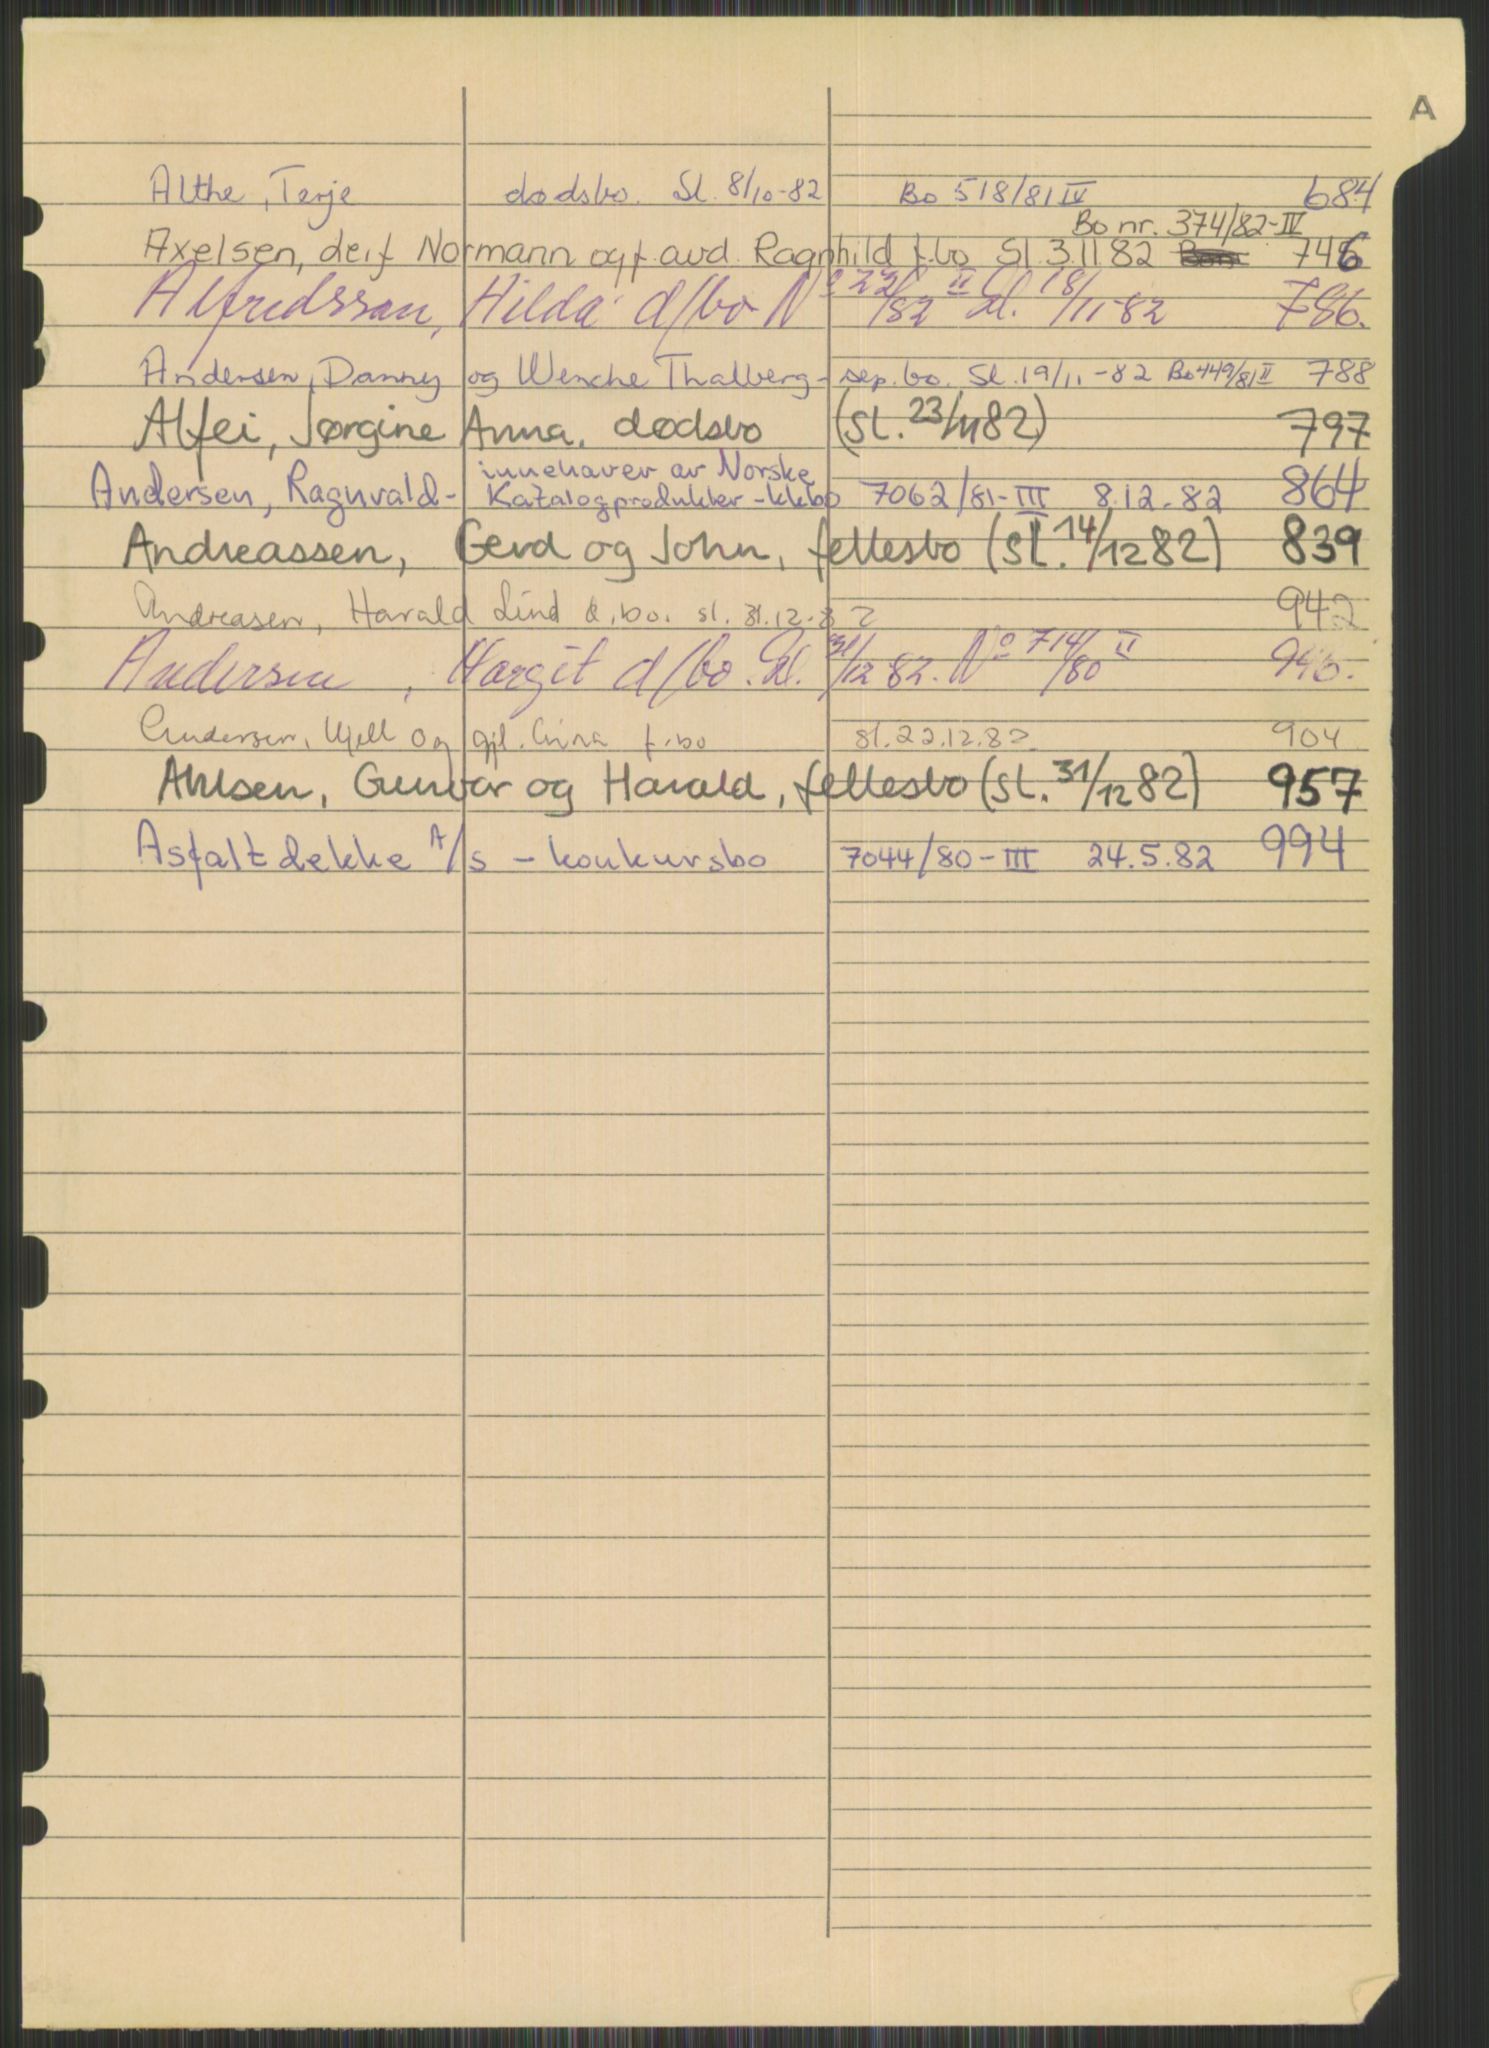 A
Althe, Terje dødsbo. Sl. 8/10-82 Bo 518/81 IV 684
Bo nr. 374/82-IV
Axelsen, Leif Normann og f. avd. Ragnhild f.bo Sl. 3.11.82 746
Alfredsson, Hilda d/bo Nº /82 II Sl. 18/11-82 786.
Andersen, Danny og Wenche Thalberg - sep.bo. Sl. 19/11-82 Bo 449/81 II 788
Alfei, Jørgine Anna, dødsbo (Sl. 23/11 82) 797
innehaver av Norske
Andersen, Ragnvald - Katalogprodukter - kkbo 7062/81-III 8.12.82 864
Andreassen, Gerd og John, fellesbo (Sl. 14/12 82) 839
Andreasen, Harald Lind d.bo. sl. 31.12.82 942
Andersen, Margit d/bo. Sl. 31/12 82. Nº 714/80 II 946.
Andersen, Kjell og gjl. f.bo sl. 22.12.82 904
Ahlsen, Gunvor og Harald, fellesbo (Sl. 31/12 82) 957
Asfaltdekke A/s - konkursbo 7044/80-III 24.5.82 994